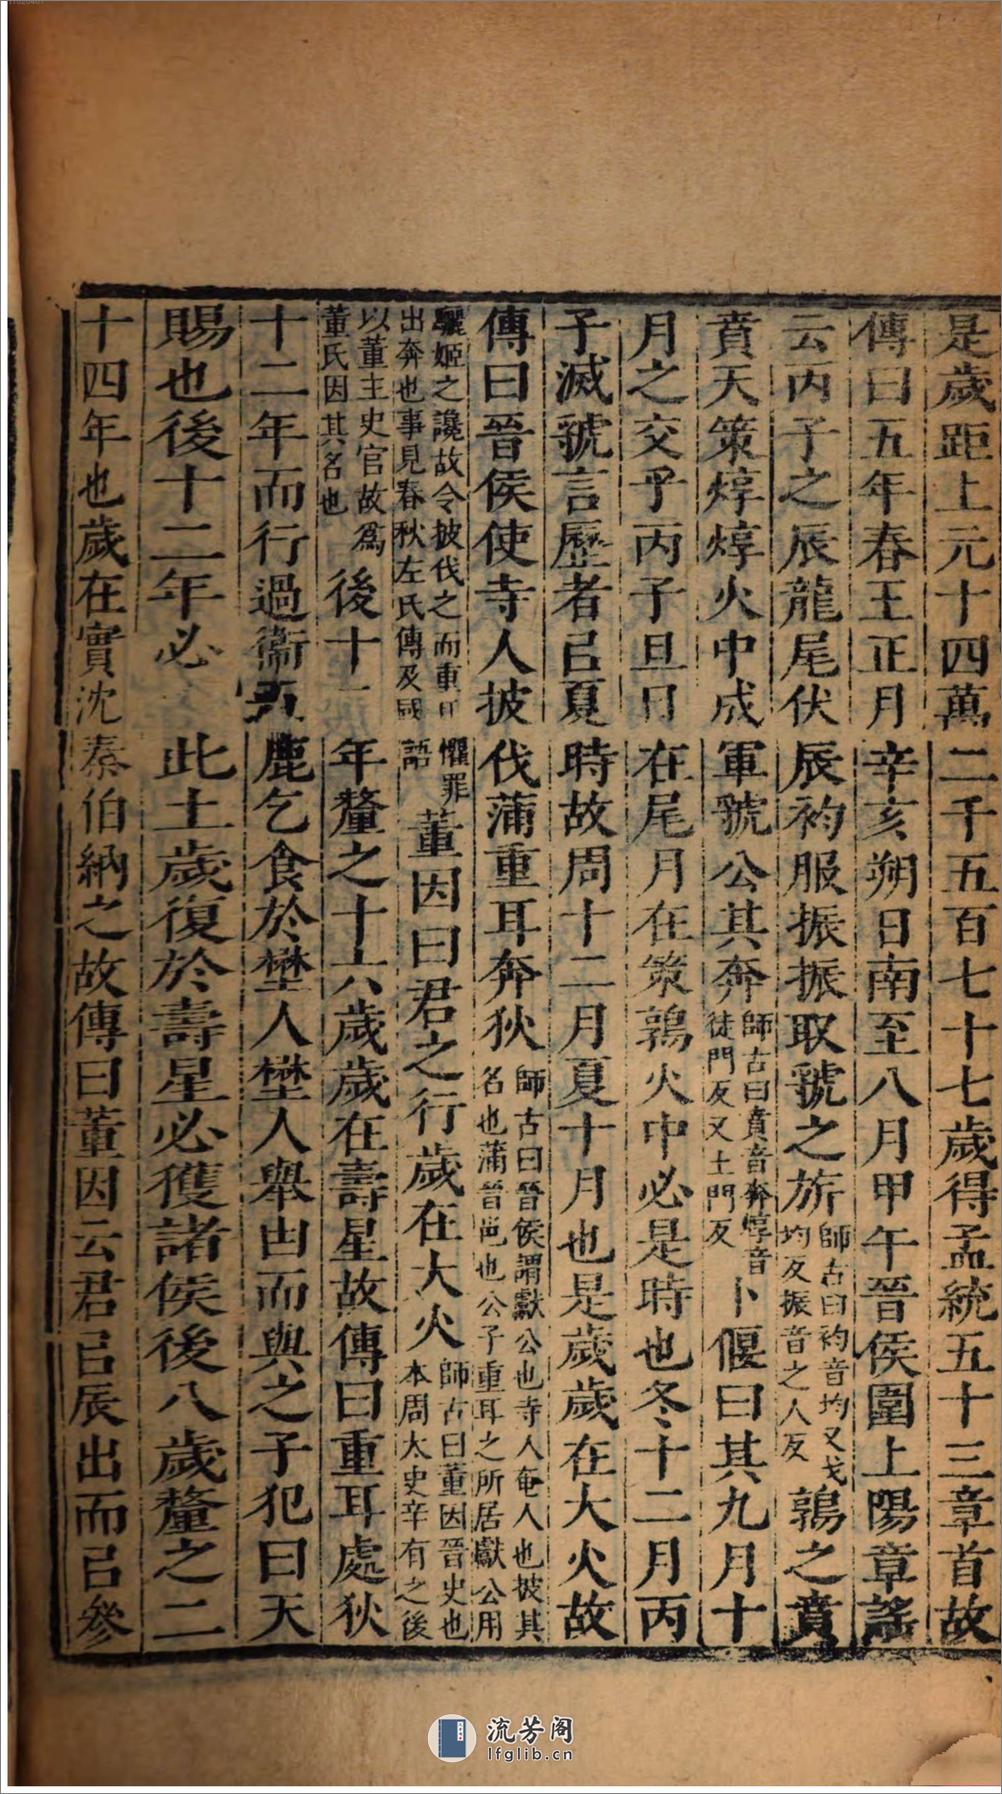 是歲距上元十四萬二千五百七十七歲得孟統五十三章首故
傳曰五年春王正月辛亥朔日南至八月甲午晉侯圍上陽章謠
云丙子之辰龍尾伏辰袀服振振取虢之旂師古曰袀音均又弋均反振音之人反鶉之賁
賁天策焞焞火中成軍虢公其奔師古曰賁音奔焞音徒門反又土門反卜偃曰其九月十
月之交乎丙子旦日在尾月在策鶉火中必是時也冬十二月丙
子滅虢言歷者㠯夏時故周十二月夏十月也是歲歲在大火故
傳曰晉侯使寺人披伐蒲重耳奔狄師古曰晉侯謂獻公也寺人奄人也披其名也蒲晉邑也公子重耳之所居獻公用
驪姬之讒故令披伐之而重耳懼罪出奔也事見春秋左氏傳及國語董因曰君之行歲在大火師古曰董因晉史也本周太史辛有之後
以董主史官故爲董氏因其名也後十二年釐之十六歲歲在壽星故傳曰重耳處狄
十二年而行過衞五鹿乞食於壄人壄人舉凷而與之子犯曰天
賜也後十二年必此土歲復於壽星必獲諸侯後八歲釐之二
十四年也歲在實沈秦伯納之故傳曰董因云君㠯辰出而㠯參
流芳阁
lfglib.cn